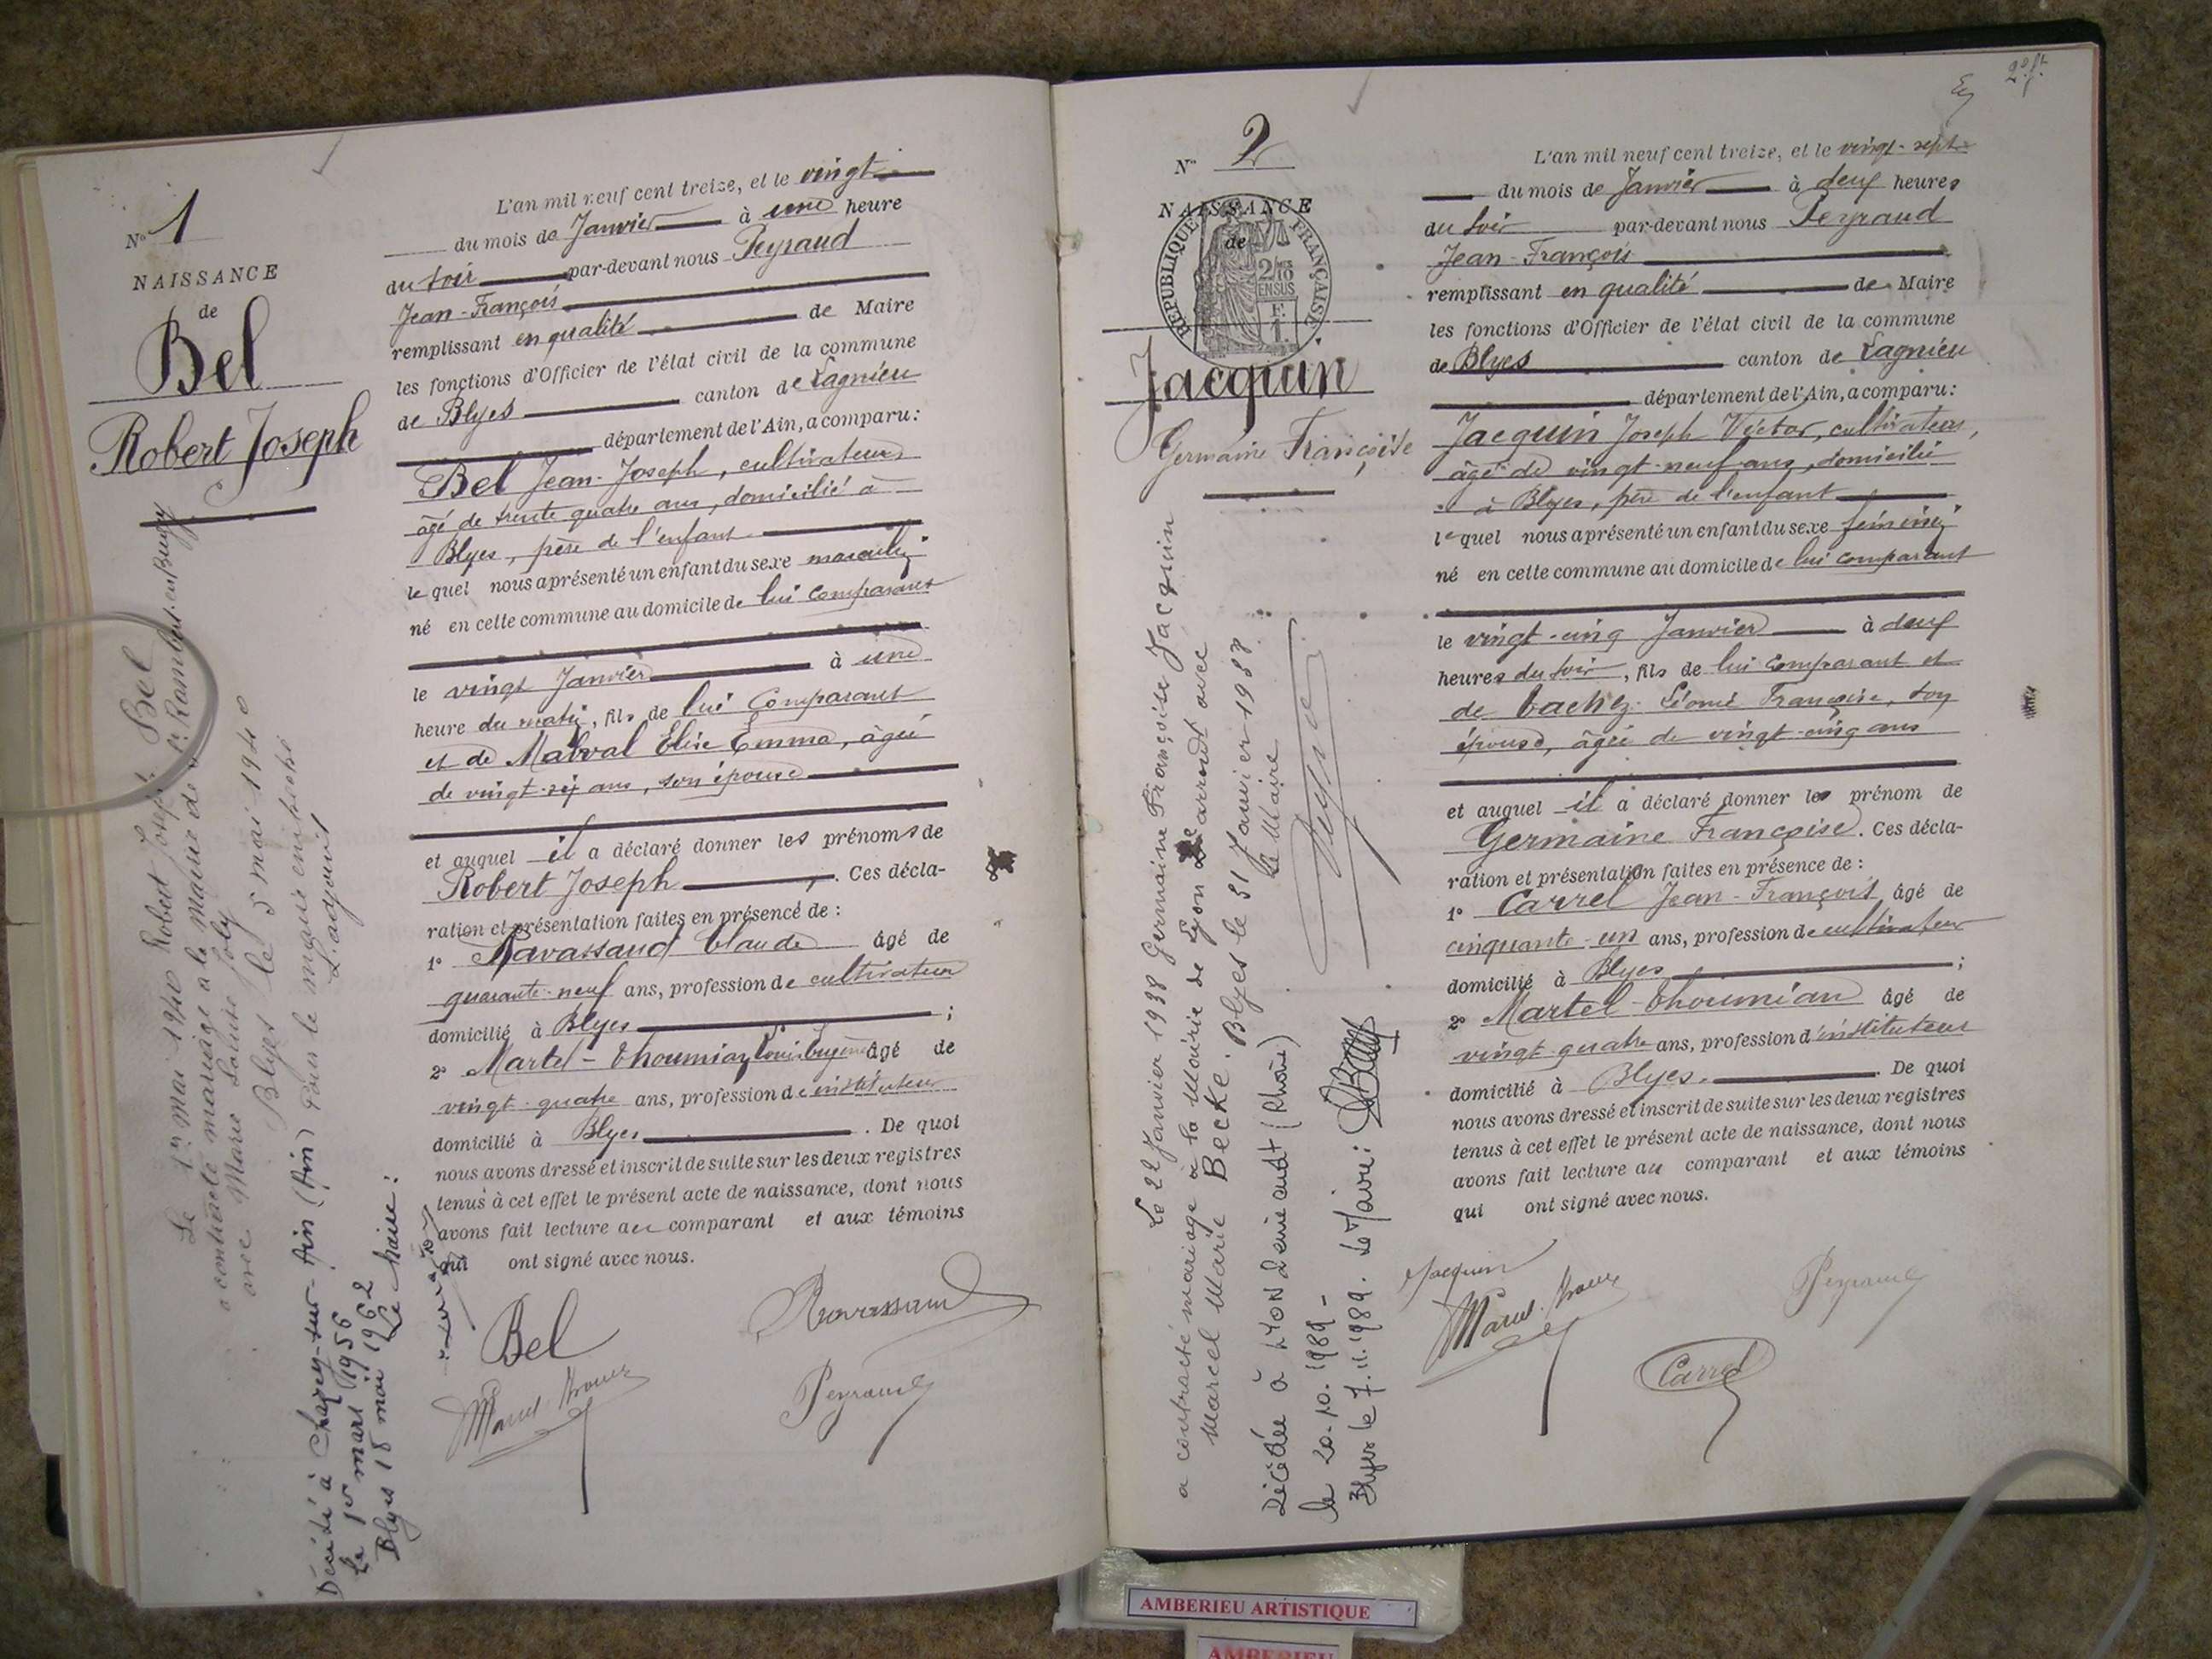 N° 1
NAISSANCE
de
Bel
Robert Joseph
L'an mil neuf cent treize, et le vingt
du mois de Janvier à une heure
du soir par-devant nous Peyraud
Jean-François
remplissant en qualité de Maire
les fonctions d'Officier de l'état civil de la commune
de Blyes canton de Lagnieu
département de l'Ain, a comparu:
Bel Jean-Joseph, cultivateur
âgé de trente quatre ans, domicilié à
Blyes, père de l'enfant
le quel nous a présenté un enfant du sexe masculin
né en cette commune au domicile de lui comparant
le vingt Janvier à une
heure du matin, fils de lui Comparant
et de Malval Elise Emma, âgée
de vingt-six ans, son épouse
et auquel il a déclaré donner les prénoms de
Robert Joseph. Ces décla-
ration et présentation faites en présence de :
1° Ravassaud Claude âgé de
quarante-neuf ans, profession de cultivateur
domicilié à Blyes ;
2° Martel-Thoumian Louis Eugène âgé de
vingt-quatre ans, profession de instituteur
domicilié à Blyes. De quoi
nous avons dressé et inscrit de suite sur les deux registres
tenus à cet effet le présent acte de naissance, dont nous
avons fait lecture au comparant et aux témoins
qui ont signé avec nous.
Bel
Ravassaud
Peyraud
Le 1er Mai 1940 Robert Joseph Bel
a contracté mariage à la mairie de St Rambert-en-Bugey
avec Marie Louise Joly
Blyes le 5 mai 1940
Pour le maire empêché
L'adjoint
Décédé à Chazey-sur-Ain (Ain)
le 15 mars 1956
Blyes 18 mai 1962
Le Maire :
N° 2
NAISSANCE
de
REPUBLIQUE FRANÇAISE
2/10
EN SUS
F.
1.
Jacquin
Germaine Françoise
L'an mil neuf cent treize, et le vingt-sept
du mois de Janvier à deux heures
du soir par-devant nous Peyraud
Jean-François
remplissant en qualité de Maire
les fonctions d'Officier de l'état civil de la commune
de Blyes canton de Lagnieu
département de l'Ain, a comparu:
Jacquin Joseph Victor, cultivateur,
âgé de vingt-neuf ans, domicilié
à Blyes, père de l'enfant
le quel nous a présenté un enfant du sexe féminin
né en cette commune au domicile de lui comparant
le vingt-cinq Janvier à deux
heures du soir, fils de lui comparant et
de Françoise, son
épouse, âgée de vingt-cinq ans
et auquel il a déclaré donner les prénom de
Germaine Françoise. Ces décla-
ration et présentation faites en présence de :
1° Carrel Jean-François âgé de
cinquante-un ans, profession de cultivateur
domicilié à Blyes ;
2° Martel-Thoumian âgé de
vingt-quatre ans, profession d'instituteur
domicilié à Blyes. De quoi
nous avons dressé et inscrit de suite sur les deux registres
tenus à cet effet le présent acte de naissance, dont nous
avons fait lecture au comparant et aux témoins
qui ont signé avec nous.
Jacquin
Peyraud
Carrel
Le 22 Janvier 1938 Germaine Françoise Jacquin
a contracté mariage à la Mairie de Lyon 2e arrondt avec
Marcel Marie Becke. Blyes le 31 Janvier 1938
Le Maire
Décédée à LYON 2ème arrdt (Rhône)
le 20-10-1989-
Blyes le 7.11.1989. Le Maire:
AMBERIEU ARTISTIQUE
AMBERIEU